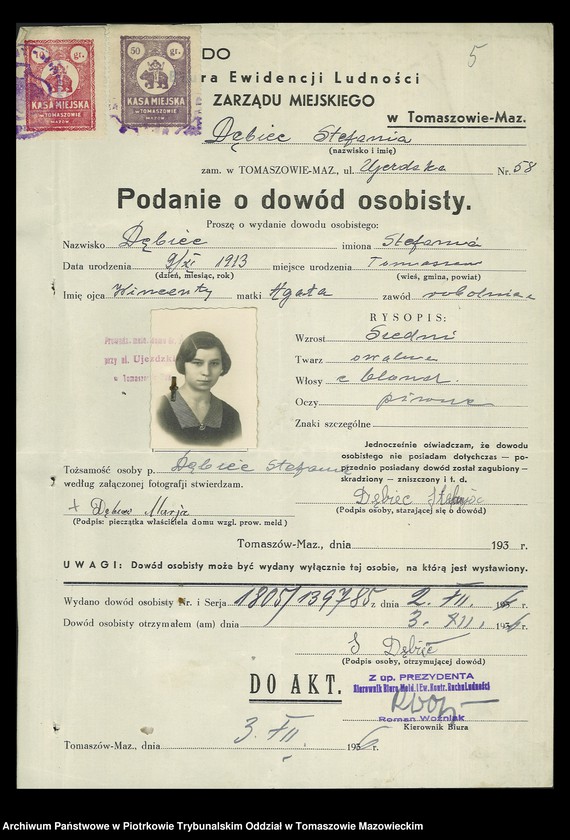 5
50 gr.
KASA MIEJSKA
W TOMASZOWIE
MAZOW.
gr.
KASA MIEJSKA
W TOMASZOWIE
MAZOW.
DO
ra Ewidencji Ludności
ZARZĄDU MIEJSKIEGO
w Tomaszowie-Maz.
Dębiec Stefania
(nazwisko i imię)
zam. w TOMASZOWIE-MAZ., ul. Ujezdzka Nr. 58
Podanie o dowód osobisty.
Proszę o wydanie dowodu osobistego:
Nazwisko Dębiec imiona Stefania
Data urodzenia 9/XI 1913 miejsce urodzenia Tomaszów
(dzień, miesiąc, rok) (wieś, gmina, powiat)
Imię ojca Wincenty matki Agata zawód robotnica
RYSOPIS:
Wzrost Średni
Twarz owalna
Włosy c. blond.
Oczy piwne
Znaki szczególne
przy ul. Ujezdzki
w Tomaszow
Jednocześnie oświadczam, że dowodu
osobistego nie posiadam dotychczas — po-
przednio posiadany dowód został zagubiony —
skradziony — zniszczony i t. d.
Tożsamość osoby p. Dębiec Stefania
według załączonej fotografji stwierdzam.
Dębiec Stefania
(Podpis osoby, starającej się o dowód)
+ Dębiec Marja
(Podpis: pieczątka właściciela domu wzgl. prow. meld)
Tomaszów-Maz., dnia 193 r.
UWAGI: Dowód osobisty może być wydany wyłącznie tej osobie, na którą jest wystawiony.
Wydano dowód osobisty Nr. i Serja 1805/139785 z dnia 2. XII. 6 r.
Dowód osobisty otrzymałem (am) dnia 3. XII. 1936 r.
S Dębiec
(Podpis osoby, otrzymującej dowód)
DO AKT.
Z up. PREZYDENTA
Kierownik Biura Meld. i Ew. Kontr. Ruchu Ludności
Roman Woźniak
Kierownik Biura
Tomaszów-Maz., dnia 3. XII 1936 r.
Archiwum Państwowe w Piotrkowie Trybunalskim Oddział w Tomaszowie Mazowieckim